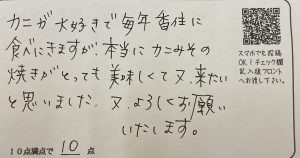 カニが大好きで毎年香住に
食べにきますが、本当にカニみその
焼きがとっても美味しくて又、来たい
と思いました。又、よろしくお願い
いたします。
10点満点で 10 点
スマホでも投稿
OK!チェック欄
記入後フロント
へお渡し下さい。